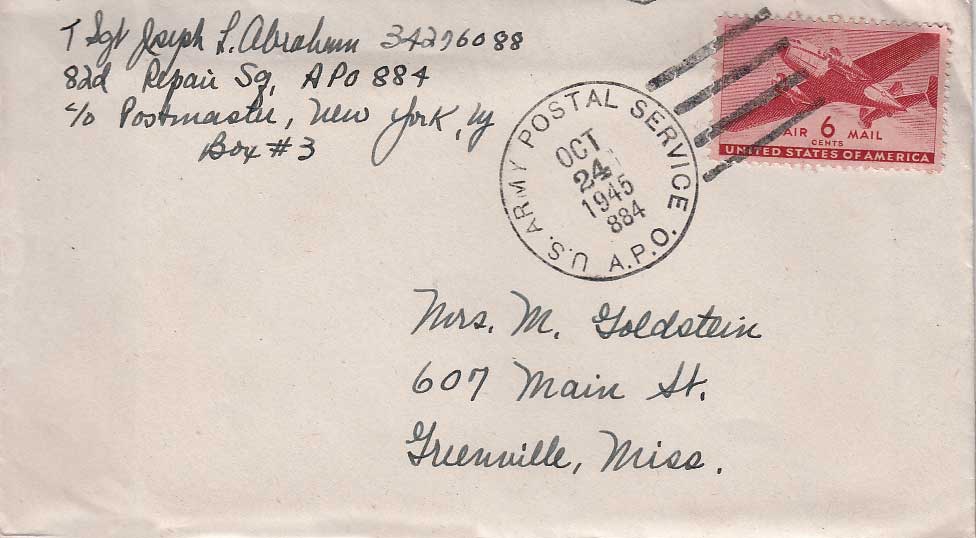 T Sgt Joseph L. Abraham 34276088
82d Repair Sq, APO 884
c/o Postmaster, New York, NY
Box # 3
U.S. ARMY POSTAL SERVICE A.P.O.
OCT
24
1945
884
AIR 6 MAIL
CENTS
UNITED STATES OF AMERICA
Mrs. M. Goldstein
607 Main St.
Greenville, Miss.